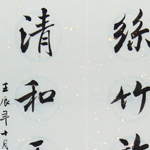 絲竹
清和
壬辰年十月